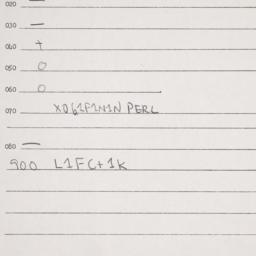 020 —
030 —
040 +
050 O
060 O
070 XO61P1N1N PERL
080 —
900 L1FC+1K